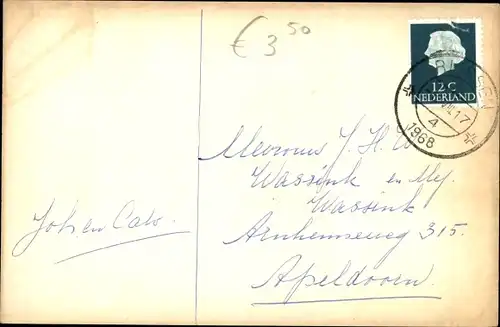 € 3 50
12 C
NEDERLAND
4
17
1968
Mevrouw J. H. W
Wassink en Mej.
Wassink
Arnhemseweg 315.
Apeldoorn.
Joh en Cato.